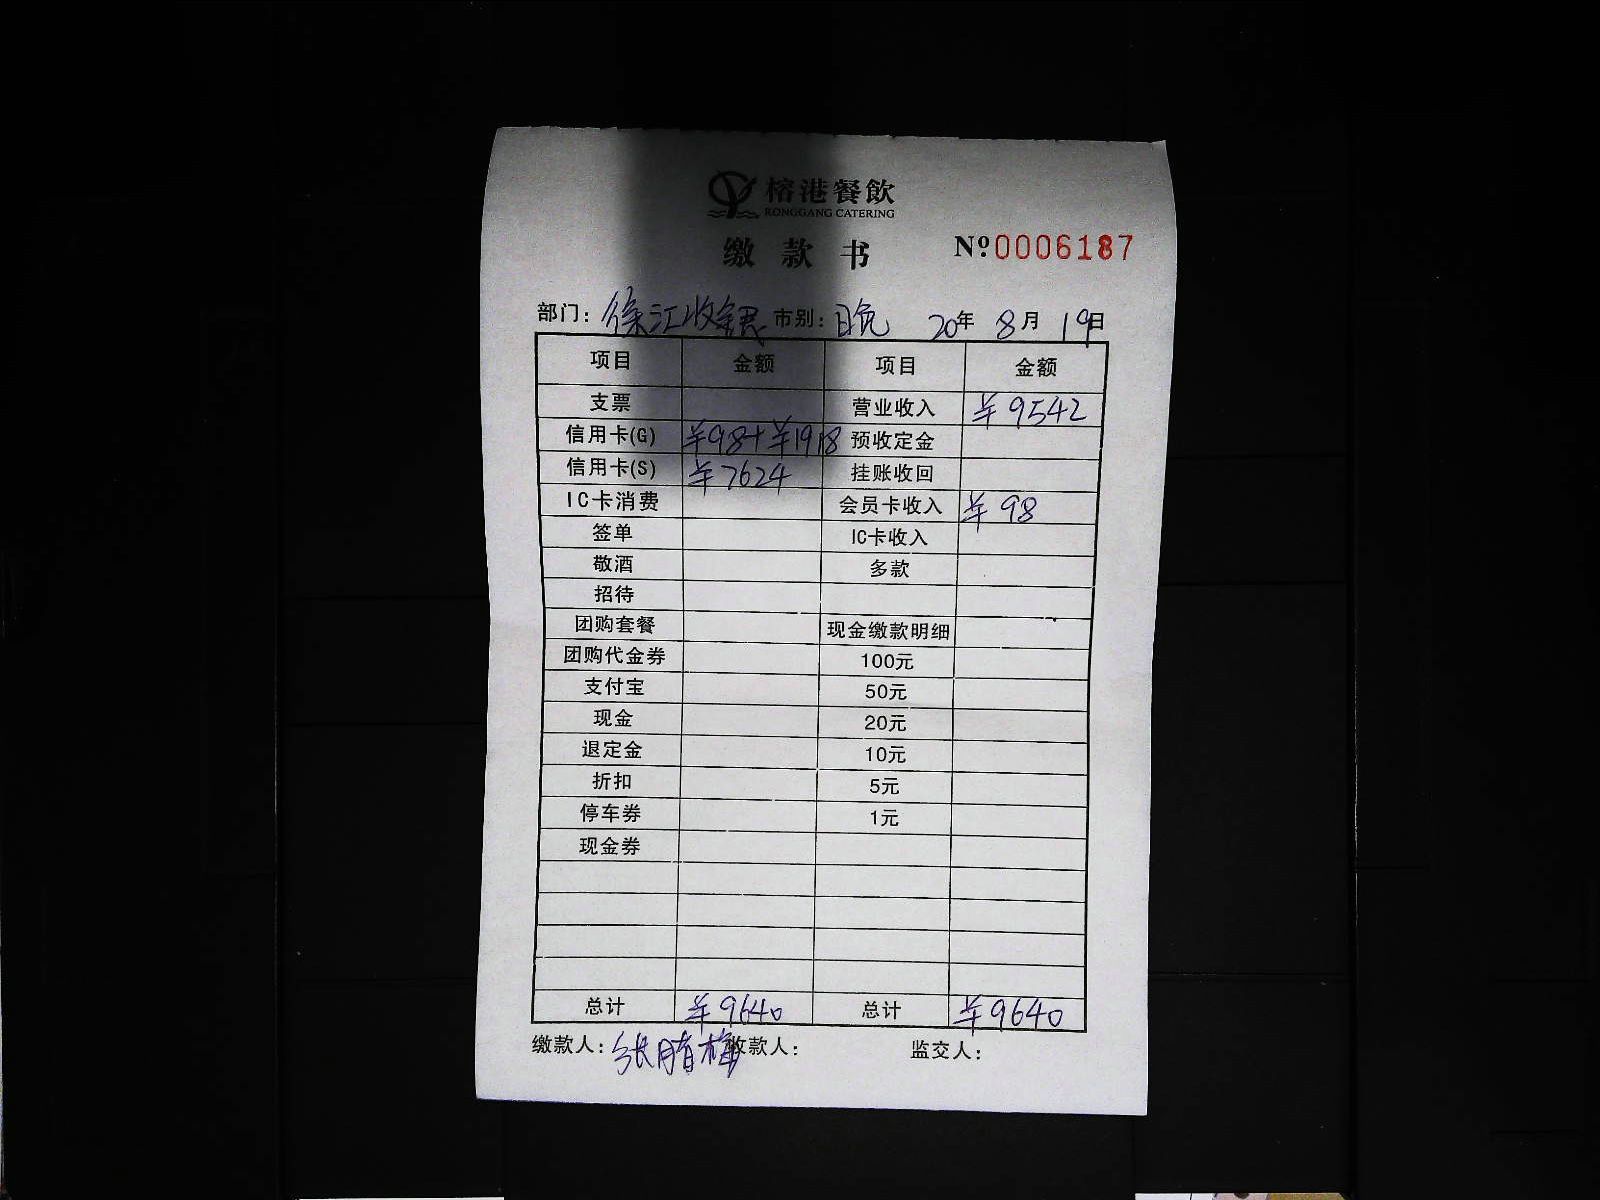 榕港餐飲
RONGGANG CATERING
缴款书 Nº0006187
部门：徐汇收银 市别：日晚 20年 8月 19日
项目 金额 项目 金额
支票 营业收入 ¥9542
信用卡(G) ¥98+¥1918 预收定金
信用卡(S) ¥7624 挂账收回
IC卡消费 会员卡收入 ¥98
签单 IC卡收入
敬酒 多款
招待
团购套餐 现金缴款明细
团购代金券 100元
支付宝 50元
现金 20元
退定金 10元
折扣 5元
停车券 1元
现金券
总计 ¥9640 总计 ¥9640
缴款人：张 梅 收款人： 监交人：